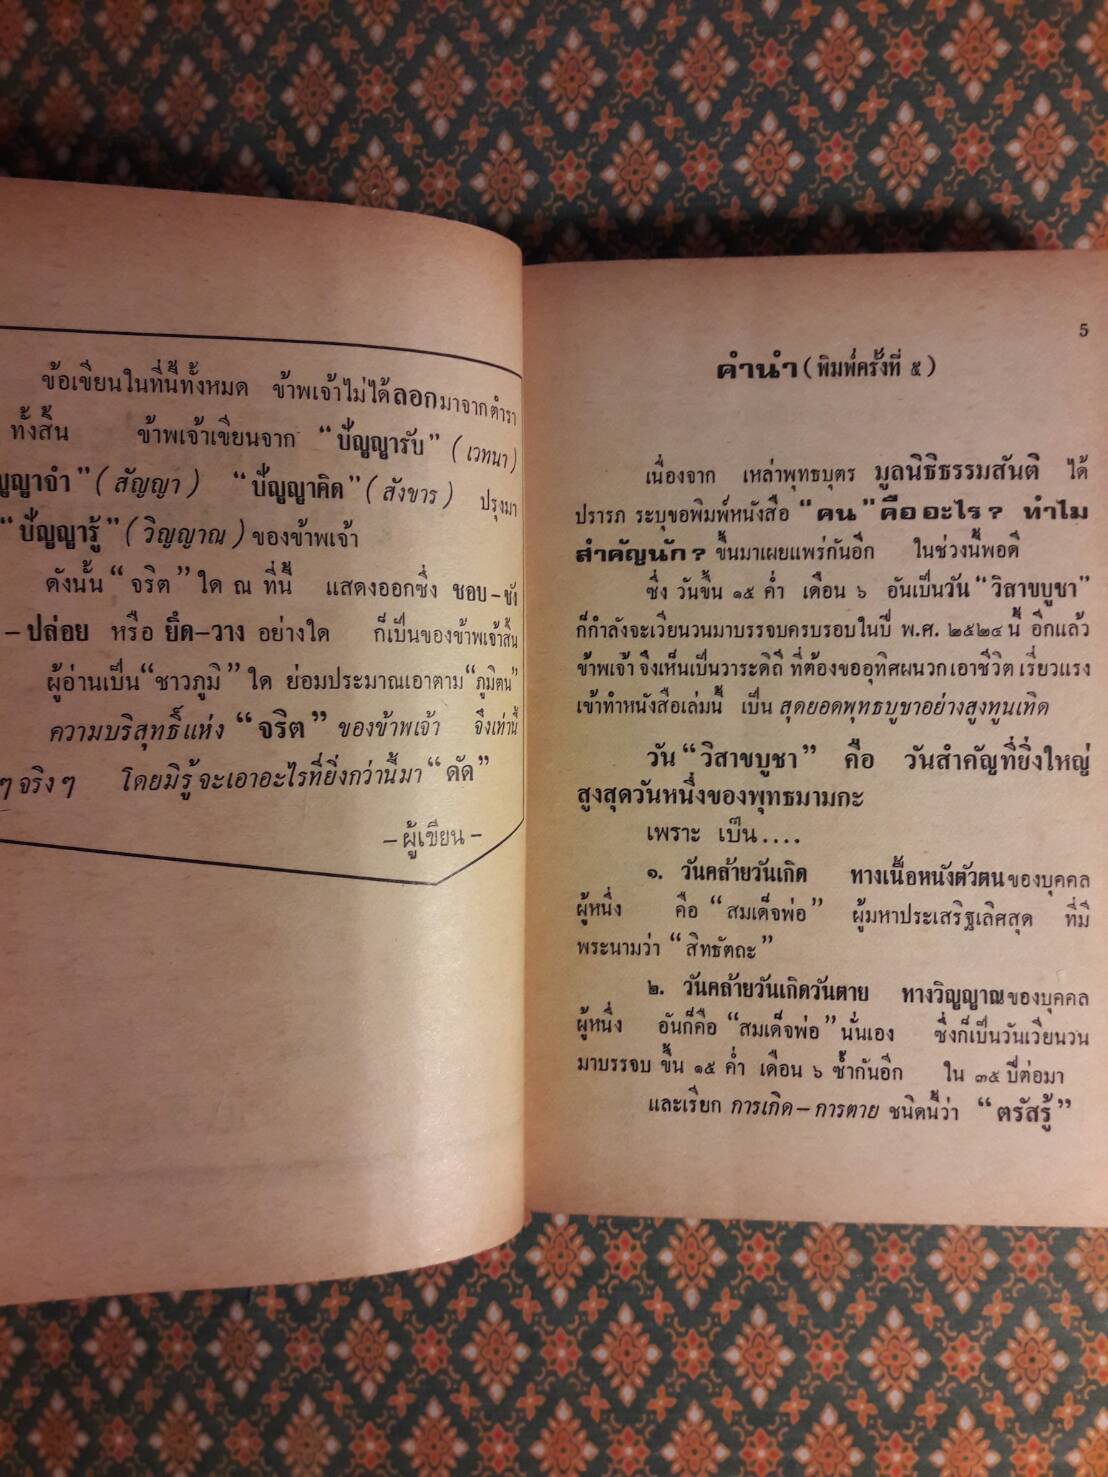 ข้อเขียนในที่นี้ทั้งหมด ข้าพเจ้าไม่ได้ลอกมาจากตำรา
ทั้งสิ้น ข้าพเจ้าเขียนจาก “ปัญญารับ” (เวทนา)
ญญาจำ” (สัญญา) “ปัญญาคิด” (สังขาร) ปรุงมา
“ปัญญารู้” (วิญญาณ) ของข้าพเจ้า
ดังนั้น “จริต” ใด ณ ที่นี้ แสดงออกซึ่ง ชอบ–ชัง
–ปล่อย หรือ ยึด–วาง อย่างใด ก็เป็นของข้าพเจ้าสิ้น
ผู้อ่านเป็น “ชาวภูมิ” ใด ย่อมประมาณเอาตาม “ภูมิตน”
ความบริสุทธิ์แห่ง “จริต” ของข้าพเจ้า จึงเท่านี้
ๆ จริง ๆ โดยมิรู้จะเอาอะไรที่ยิ่งกว่านี้มา “ดัด”
– ผู้เขียน –
5
คำนำ (พิมพ์ครั้งที่ ๕)
เนื่องจาก เหล่าพุทธบุตร มูลนิธิธรรมสันติ ได้
ปรารภ ระบุขอพิมพ์หนังสือ “คน” คืออะไร? ทำไม
สำคัญนัก? ขึ้นมาเผยแพร่กันอีก ในช่วงนี้พอดี
ซึ่ง วันขึ้น ๑๕ ค่ำ เดือน ๖ อันเป็นวัน “วิสาขบูชา”
ก็กำลังจะเวียนวนมาบรรจบครบรอบในปี พ.ศ. ๒๕๒๔ นี้ อีกแล้ว
ข้าพเจ้า จึงเห็นเป็นวาระดิถี ที่ต้องขออุทิศผนวกเอาชีวิต เรี่ยวแรง
เข้าทำหนังสือเล่มนี้ เป็น สุดยอดพุทธบูชาอย่างสูงทูนเทิด
วัน “วิสาขบูชา” คือ วันสำคัญที่ยิ่งใหญ่
สูงสุดวันหนึ่งของพุทธมามกะ
เพราะ เป็น....
๑. วันคล้ายวันเกิด ทางเนื้อหนังตัวตนของบุคคล
ผู้หนึ่ง คือ “สมเด็จพ่อ” ผู้มหาประเสริฐเลิศสุด ที่มี
พระนามว่า “สิทธัตถะ”
๒. วันคล้ายวันเกิดวันตาย ทางวิญญาณของบุคคล
ผู้หนึ่ง อันก็คือ “สมเด็จพ่อ” นั่นเอง ซึ่งก็เป็นวันเวียนวน
มาบรรจบ ขึ้น ๑๕ ค่ำ เดือน ๖ ซ้ำกันอีก ใน ๓๕ ปีต่อมา
และเรียก การเกิด–การตาย ชนิดนี้ว่า “ตรัสรู้”